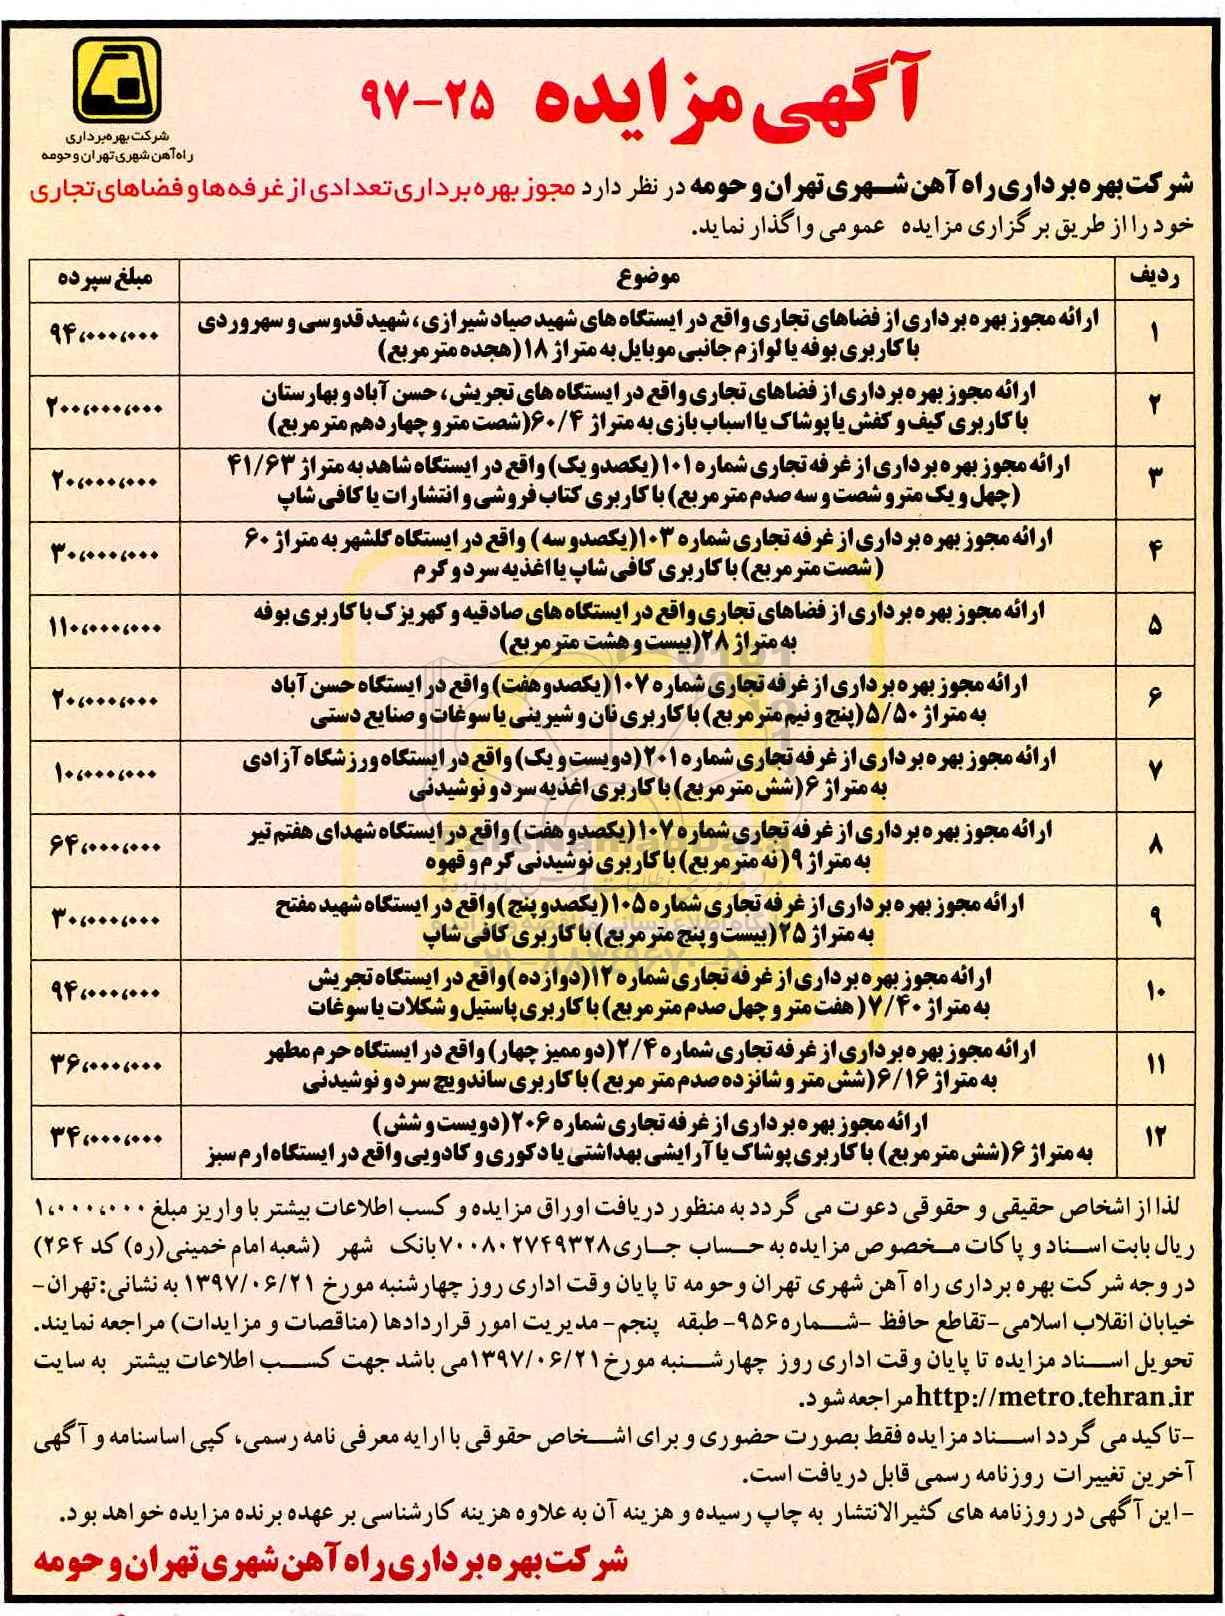 آگهی مزایده ۲۵-۹۷
شرکت بهره برداری
راه آهن شهری تهران و حومه
شرکت بهره برداری راه آهن شهری تهران و حومه در نظر دارد مجوز بهره برداری تعدادی از غرفه ها و فضاهای تجاری
خود را از طریق برگزاری مزایده عمومی واگذار نماید.
ردیف موضوع مبلغ سپرده
۱ ارائه مجوز بهره برداری از فضاهای تجاری واقع در ایستگاه های شهید صیاد شیرازی، شهید قدوسی و سهروردی
با کاربری بوفه یا لوازم جانبی موبایل به متراژ ۱۸(هجده متر مربع) ۹۴،۰۰۰،۰۰۰
۲ ارائه مجوز بهره برداری از فضاهای تجاری واقع در ایستگاه های تجریش، حسن آباد و بهارستان
با کاربری کیف و کفش یا پوشاک یا اسباب بازی به متراژ ۶۰/۴(شصت متر و چهار دهم متر مربع) ۲۰۰،۰۰۰،۰۰۰
۳ ارائه مجوز بهره برداری از غرفه تجاری شماره ۱۰۱(یکصدو یک) واقع در ایستگاه شاهد به متراژ ۴۱/۶۳
(چهل و یک متر و شصت و سه صدم متر مربع) با کاربری کتاب فروشی و انتشارات یا کافی شاپ ۲۰،۰۰۰،۰۰۰
۴ ارائه مجوز بهره برداری از غرفه تجاری شماره ۱۰۳(یکصدو سه) واقع در ایستگاه گلشهر به متراژ ۶۰
(شصت متر مربع) با کاربری کافی شاپ یا اغذیه سرد و گرم ۳۰،۰۰۰،۰۰۰
۵ ارائه مجوز بهره برداری از فضاهای تجاری واقع در ایستگاه های صادقیه و کهریزک با کاربری بوفه
به متراژ ۲۸(بیست و هشت متر مربع) ۱۱۰،۰۰۰،۰۰۰
۶ ارائه مجوز بهره برداری از غرفه تجاری شماره ۱۰۷(یکصدو هفت) واقع در ایستگاه حسن آباد
به متراژ ۵/۵۰(پنج و نیم متر مربع) با کاربری نان و شیرینی یا سوغات و صنایع دستی ۲۰،۰۰۰،۰۰۰
۷ ارائه مجوز بهره برداری از غرفه تجاری شماره ۲۰۱(دویست و یک) واقع در ایستگاه ورزشگاه آزادی
به متراژ ۶(شش متر مربع) با کاربری اغذیه سرد و نوشیدنی ۱۰،۰۰۰،۰۰۰
۸ ارائه مجوز بهره برداری از غرفه تجاری شماره ۱۰۷(یکصدو هفت) واقع در ایستگاه شهدای هفتم تیر
به متراژ ۹(نه متر مربع) با کاربری نوشیدنی گرم و قهوه ۶۴،۰۰۰،۰۰۰
۹ ارائه مجوز بهره برداری از غرفه تجاری شماره ۱۰۵(یکصدو پنج)واقع در ایستگاه شهید مفتح
به متراژ ۲۵(بیست و پنج متر مربع) با کاربری کافی شاپ ۳۰،۰۰۰،۰۰۰
۱۰ ارائه مجوز بهره برداری از غرفه تجاری شماره ۱۲(دوازده)واقع در ایستگاه تجریش
به متراژ ۷/۴۰(هفت متر و چهل صدم متر مربع) با کاربری پاستیل و شکلات یا سوغات ۹۴،۰۰۰،۰۰۰
۱۱ ارائه مجوز بهره برداری از غرفه تجاری شماره ۲/۴(دو ممیز چهار) واقع در ایستگاه حرم مطهر
به متراژ ۶/۱۶(شش متر و شانزده صدم متر مربع) با کاربری ساندویچ سرد و نوشیدنی ۳۶،۰۰۰،۰۰۰
۱۲ ارائه مجوز بهره برداری از غرفه تجاری شماره ۲۰۶(دویست و شش)
به متراژ ۶(شش متر مربع) با کاربری پوشاک یا آرایشی بهداشتی یا دکوری و کادویی واقع در ایستگاه ارم سبز ۳۴،۰۰۰،۰۰۰
لذا از اشخاص حقیقی و حقوقی دعوت می گردد به منظور دریافت اوراق مزایده و کسب اطلاعات بیشتر با واریز مبلغ ۱،۰۰۰،۰۰۰
ریال بابت اسناد و پاکات مخصوص مزایده به حساب جاری۷۰۰۸۰۲۷۴۹۳۲۸بانک شهر (شعبه امام خمینی(ره) کد ۲۶۴)
در وجه شرکت بهره برداری راه آهن شهری تهران وحومه تا پایان وقت اداری روز چهارشنبه مورخ ۱۳۹۷/۰۶/۲۱ به نشانی: تهران-
خیابان انقلاب اسلامی-تقاطع حافظ -شماره۹۵۶- طبقه پنجم- مدیریت امور قراردادها (مناقصات و مزایدات) مراجعه نمایند.
تحویل اسناد مزایده تا پایان وقت اداری روز چهارشنبه مورخ ۱۳۹۷/۰۶/۲۱می باشد جهت کسب اطلاعات بیشتر به سایت
http://metro.tehran.ir مراجعه شود.
-تاکید می گردد اسناد مزایده فقط بصورت حضوری و برای اشخاص حقوقی با ارایه معرفی نامه رسمی، کپی اساسنامه و آگهی
آخرین تغییرات روزنامه رسمی قابل دریافت است.
-این آگهی در روزنامه های کثیرالانتشار به چاپ رسیده و هزینه آن به علاوه هزینه کارشناسی بر عهده برنده مزایده خواهد بود.
شرکت بهره برداری راه آهن شهری تهران و حومه
ParsNamadData
۰۲۱-۸۸۳۴۹۶۷۰-۵